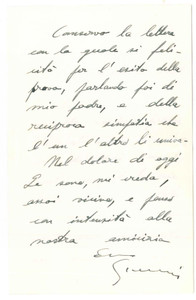 Conservo la lettera
con la quale si feli-
citò per l'esito della
prova, parlando poi di
mio padre, e della
reciproca simpatia che
l'un l'altro li univa.
Nel dolore di oggi
Le sono, mi creda,
assai vicino, e penso
con intensità alla
nostra amicizia
Suo